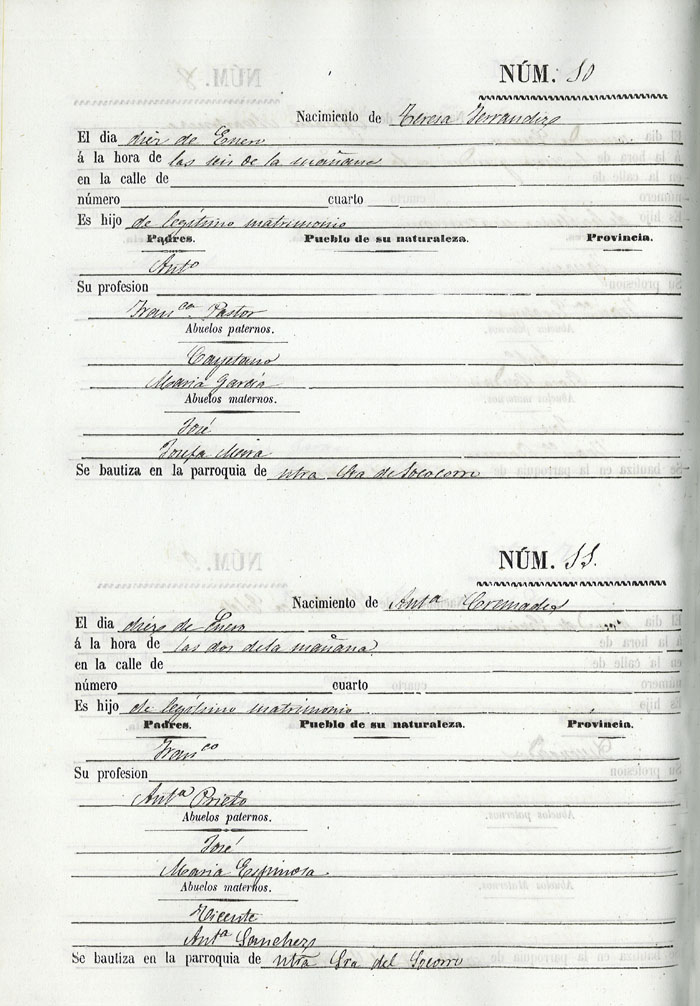 NÚM. 10
Nacimiento de Teresa Ferrandiz
El dia diez de Enero
á la hora de las seis de la mañana
en la calle de
número cuarto
Es hijo de legítimo matrimonio
Padres. Pueblo de su naturaleza. Provincia.
Antº
Su profesion
Franca Pastor
Abuelos paternos.
Cayetano
Maria Garcia
Abuelos maternos.
José
Josefa Mira
Se bautiza en la parroquia de ntra Sra de Socorro
NÚM. 11.
Nacimiento de Anta Cremades
El dia diezº de Enero
á la hora de las dos de la mañana
en la calle de
número cuarto
Es hijo de legítimo matrimonio
Padres. Pueblo de su naturaleza. Provincia.
Franco
Su profesion
Anta Prieto
Abuelos paternos.
José
Maria Espinosa
Abuelos maternos.
Vicente
Anta Sanchez
Se bautiza en la parroquia de ntra Sra del Socorro